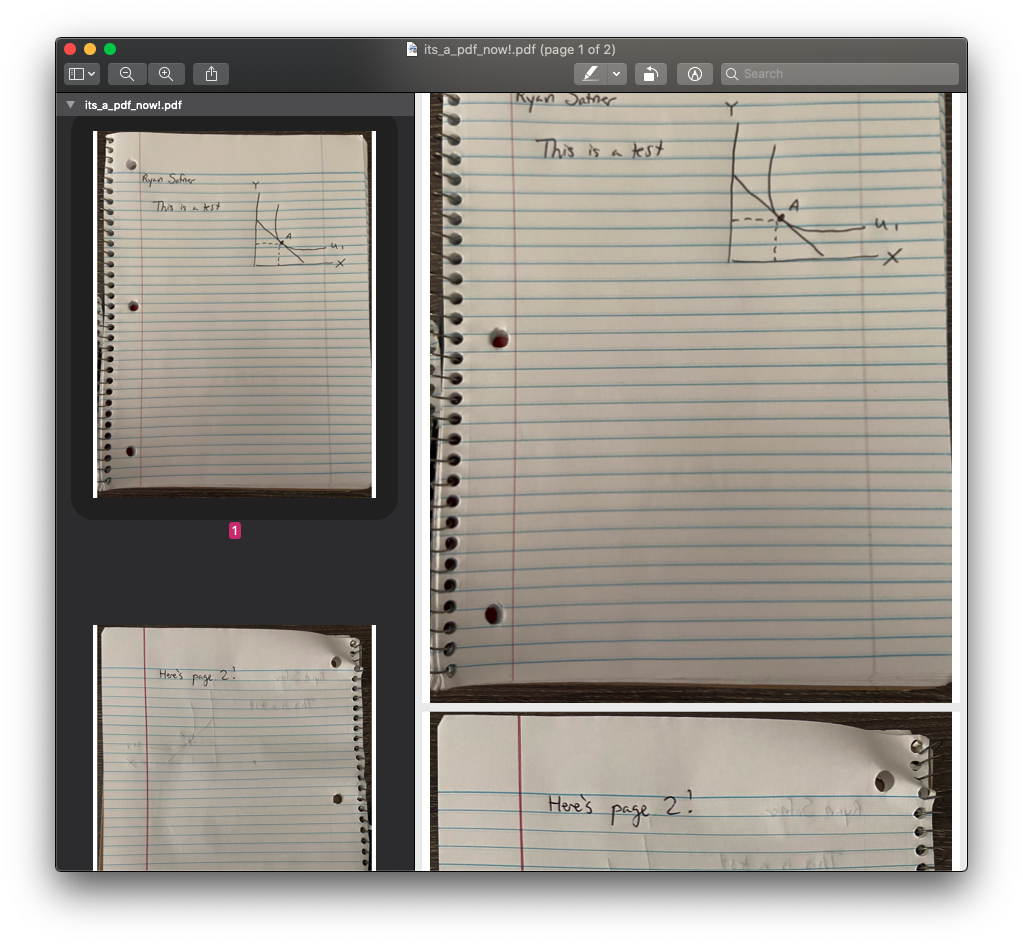 its_a_pdf_now!.pdf (page 1 of 2)
Search
its_a_pdf_now!.pdf
Ryan Safner
This is a test
Y
A
U1
X
1
Here's page 2!
Ryan Safner
This is a test
Y
A
U1
X
Here's page 2!